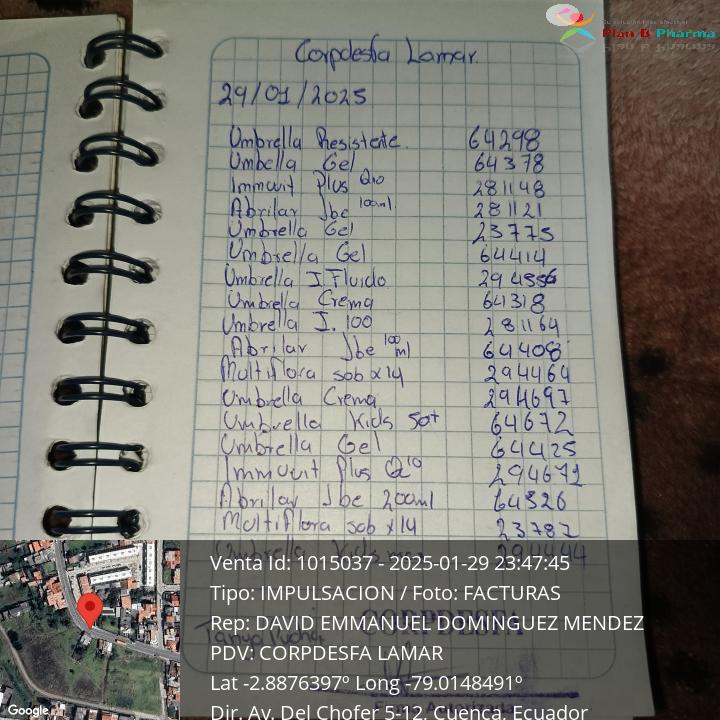 Tu solución más efectiva!
Plan B Pharma
Corpdesfa Lamar.
29/01/2025
Umbrella Resistente. 64298
Umbella Gel 64378
Immuvit Plus Q10 281148
Abrilar Jbe 100ml. 281121
Umbrella Gel 23775
Umbrella Gel 64414
Umbrella I. Fluido 294556
Umbrella Crema 64318
Umbrella I. 100 281164
Abrilar Jbe 100 ml 64408
Multiflora sob x14 294464
Umbrella Crema 294697
Umbrella Kids 50+ 64672
Umbrella Gel 64425
Immuvit Plus Q10 294671
Abrilar Jbe 200ml 64326
Multiflora sob x14 23782
Umbrella Kids 294444
CORPDESFA
Venta Id: 1015037 - 2025-01-29 23:47:45
Tipo: IMPULSACION / Foto: FACTURAS
Rep: DAVID EMMANUEL DOMINGUEZ MENDEZ
PDV: CORPDESFA LAMAR
Lat -2.8876397º Long -79.0148491º
Dir. Av. Del Chofer 5-12, Cuenca, Ecuador
Google